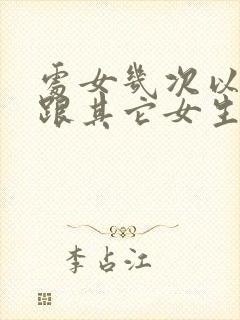 处女几次以
跟其它女生
李占江